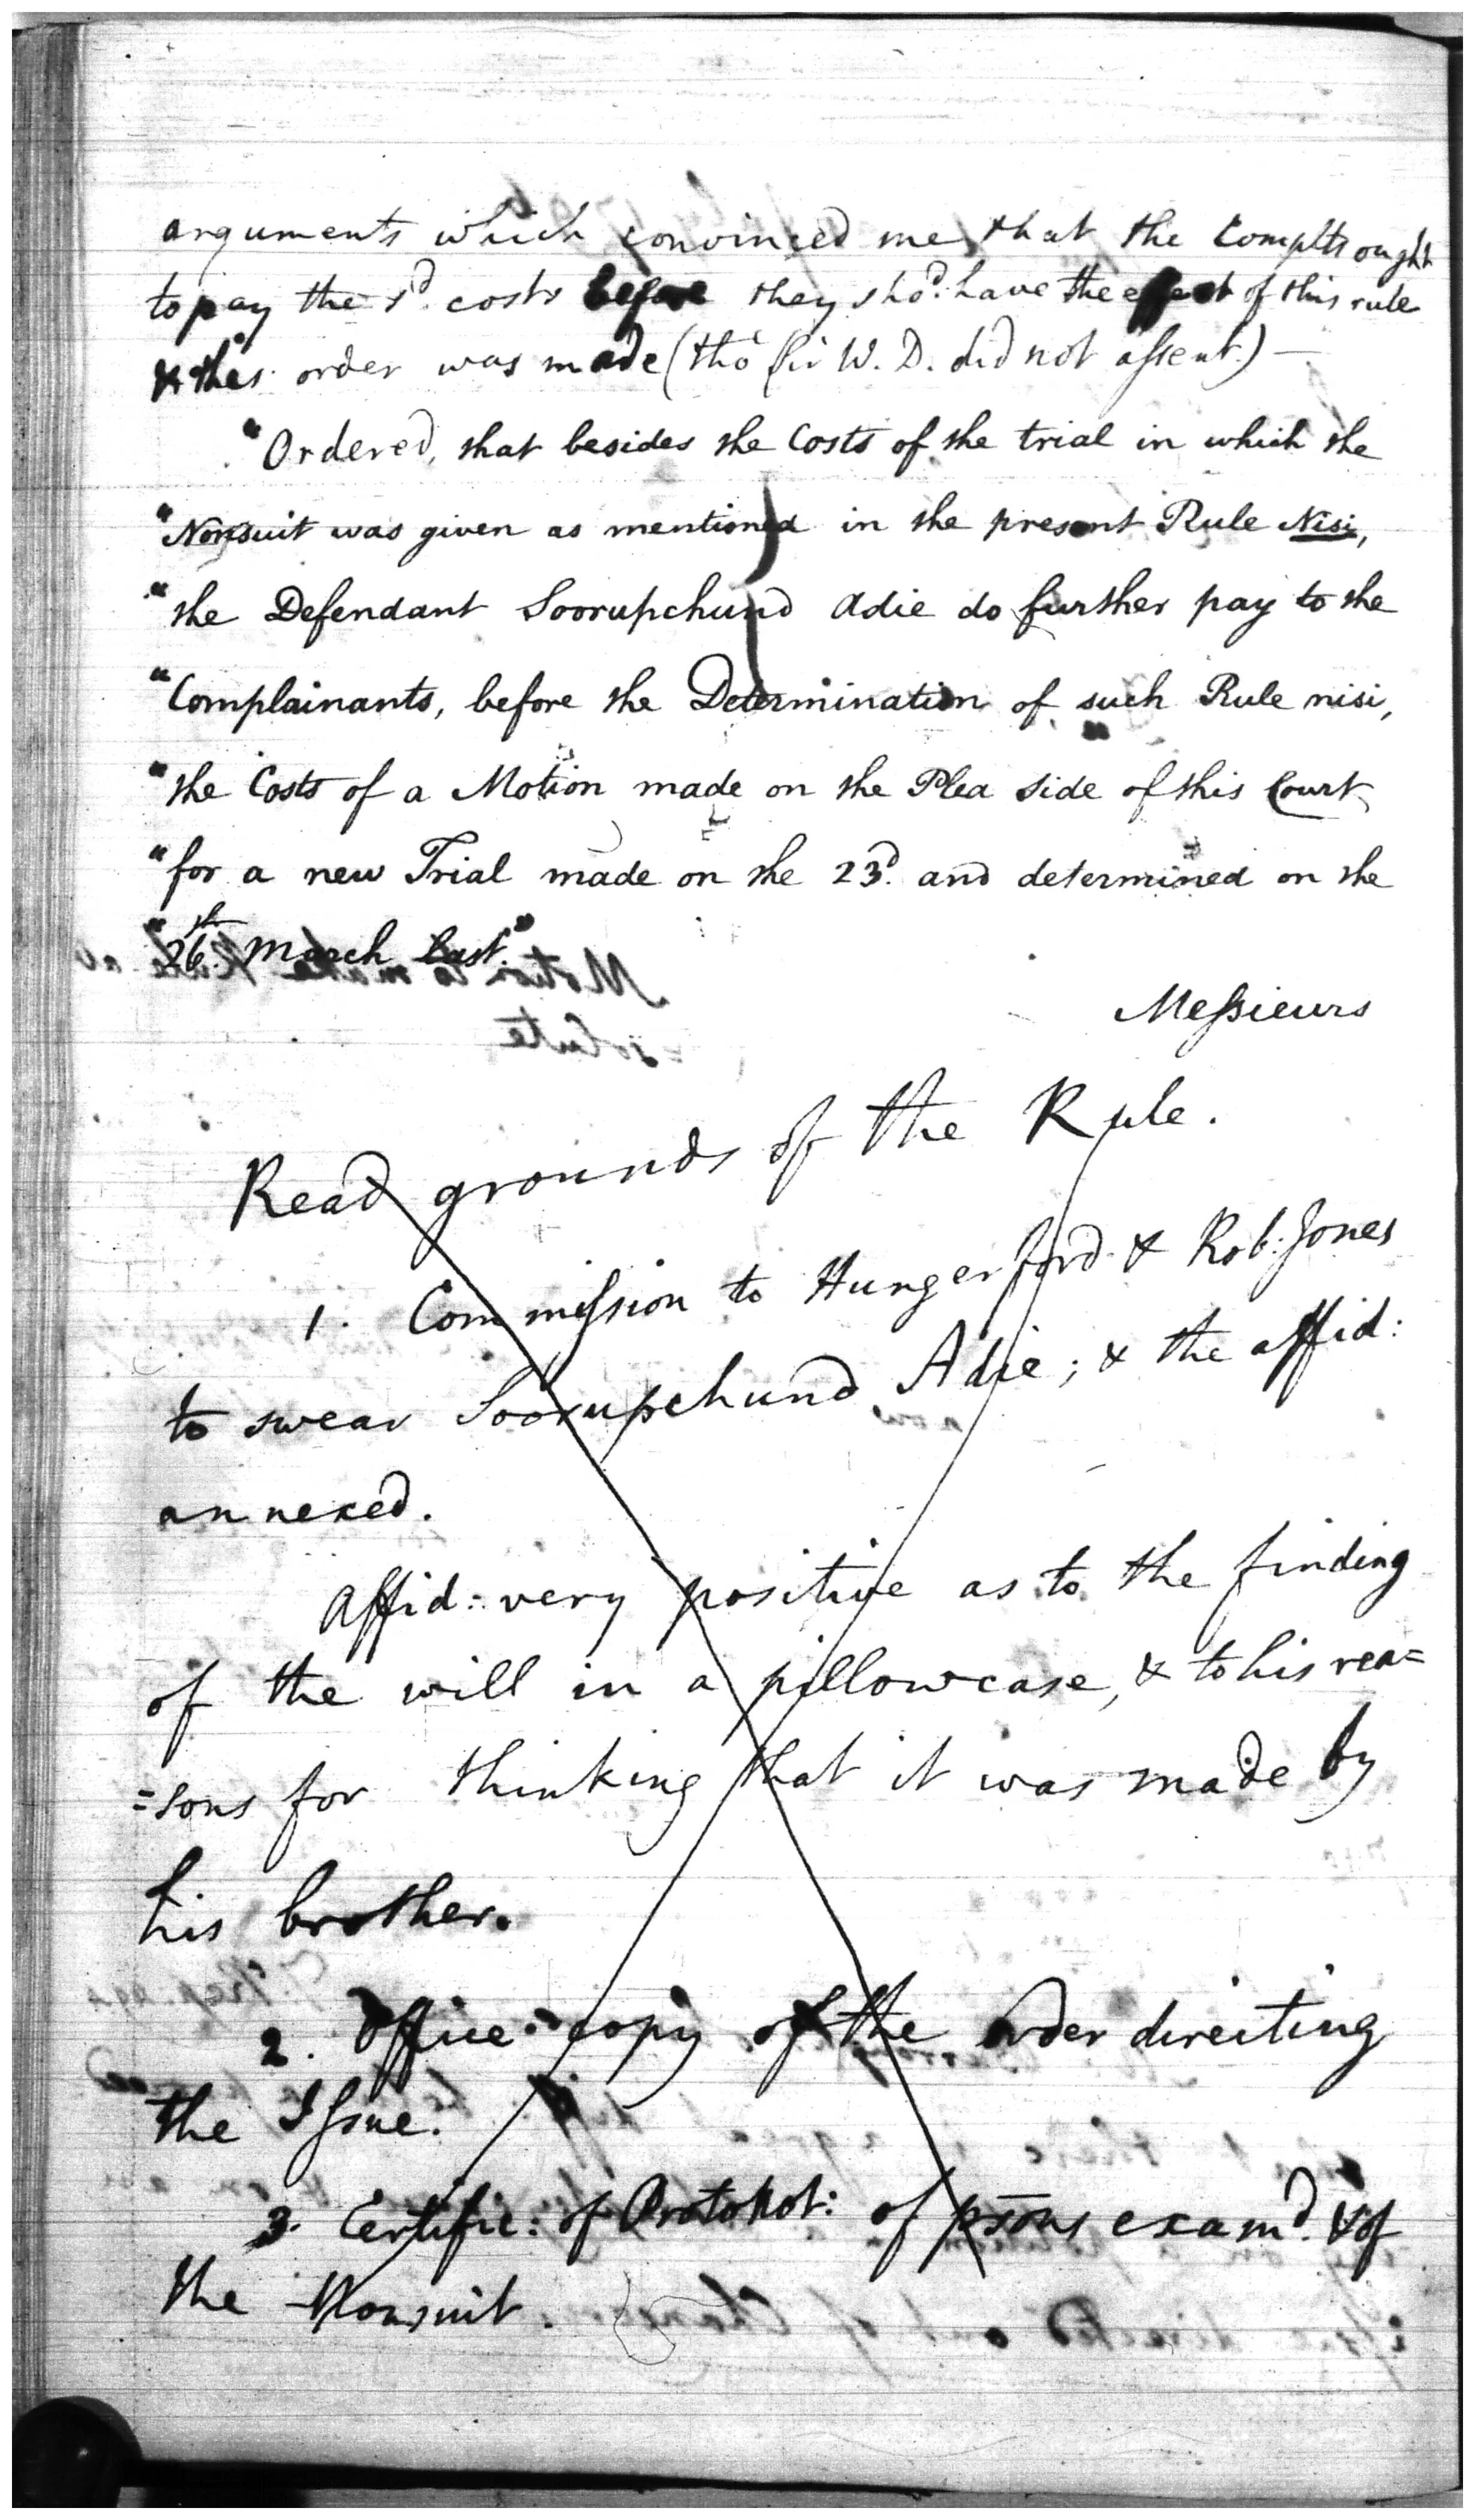 arguments which convinced me that the Complts ought
to pay the sd. costs before they shod. have the effect of this rule
& this order was made (tho' Sir W. D. did not assent.) —
"Ordered, that besides the Costs of the trial in which the
"Nonsuit was given as mentioned in the present Rule Nisi,
"the Defendant Soorupchund Adie do further pay to the
"Complainants, before the Determination of such Rule nisi,
"the Costs of a Motion made on the Plea side of this Court
"for a new Trial made on the 23d. and determined on the
"26th. March last."
Messieurs
Read grounds of the Rule.
1. Commission to Hungerford & Rob: Jones
to swear Soorupchund Adie; & the affid:
annexed.
Affid: very positive as to the finding
of the will in a pillowcase, & to his rea=
=sons for thinking that it was made by
his brother.
2. Office copy of the order directing
the Issue.
3. Certific: of Protonot: of psons examd. & of
the Nonsuit.